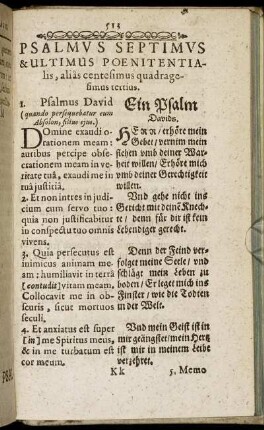 513
PSALMVS SEPTIMVS
& ULTIMUS POENITENTIA-
lis, aliàs centesimus quadrage-
simus tertius.
1. Psalmus David
(quando persequebatur eum
Absolon, filius ejus.)
DOmine exaudi o-
rationem meam:
auribus percipe obse-
crationem meam in ve-
ritate tuâ, exaudi me in
tuâ justitiâ.
2. Et non intres in judi-
cium cum servo tuo:
quia non justificabitur
in conspectu tuo omnis
vivens.
3. Quia persecutus est
inimicus animam me-
am: humiliavit in terrâ
[contudit] vitam meam,
Collocavit me in ob-
scuris, sicut mortuos
seculi.
4. Et anxiatus est super
[in] me Spiritus meus,
& in me turbatum est
cor meum.
Ein Psalm
Davids.
HERR / erhöre mein
Gebet / vernim mein
flehen vmb deiner War-
heit willen / Erhöre mich
vmb deiner Gerechtigkeit
willen.
Vnd gehe nicht ins
Gericht mit deinē Knech-
te / denn für dir ist kein
lebendiger gerecht.
Denn der Feind ver-
folget meine Seele / vnd
schlägt mein Leben zu
boden / Er leget mich ins
Finster / wie die Todten
in der Welt.
Vnd mein Geist ist in
mir geängstet / mein Hertz
ist mir in meinem Leibe
verzehret.
Kk
5. Memo